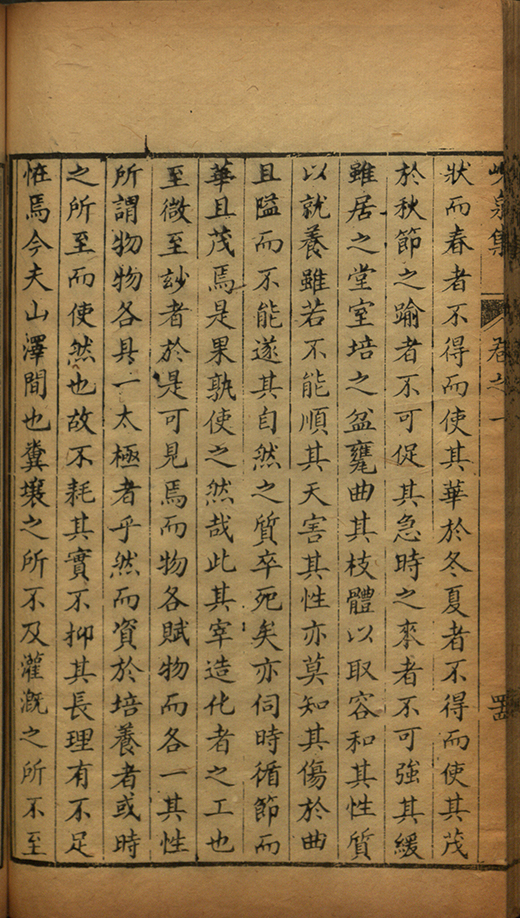 峴泉集 卷之一 四
狀而春者不得而使其華於冬夏者不得而使其茂
於秋節之踰者不可促其急時之來者不可強其緩
雖居之堂室培之盆甕曲其枝體以取容和其性質
以就養雖若不能順其天害其性亦莫知其傷於曲
且隘而不能遂其自然之質卒死矣亦伺時循節而
華且茂焉是果孰使之然哉此其宰造化者之工也
至微至玅者於是可見焉而物各賦物而各一其性
所謂物物各具一太極者乎然而資於培養者或時
之所至而使然也故不耗其實不抑其長理有不足
恠焉今夫山澤間也糞壤之所不及灌溉之所不至